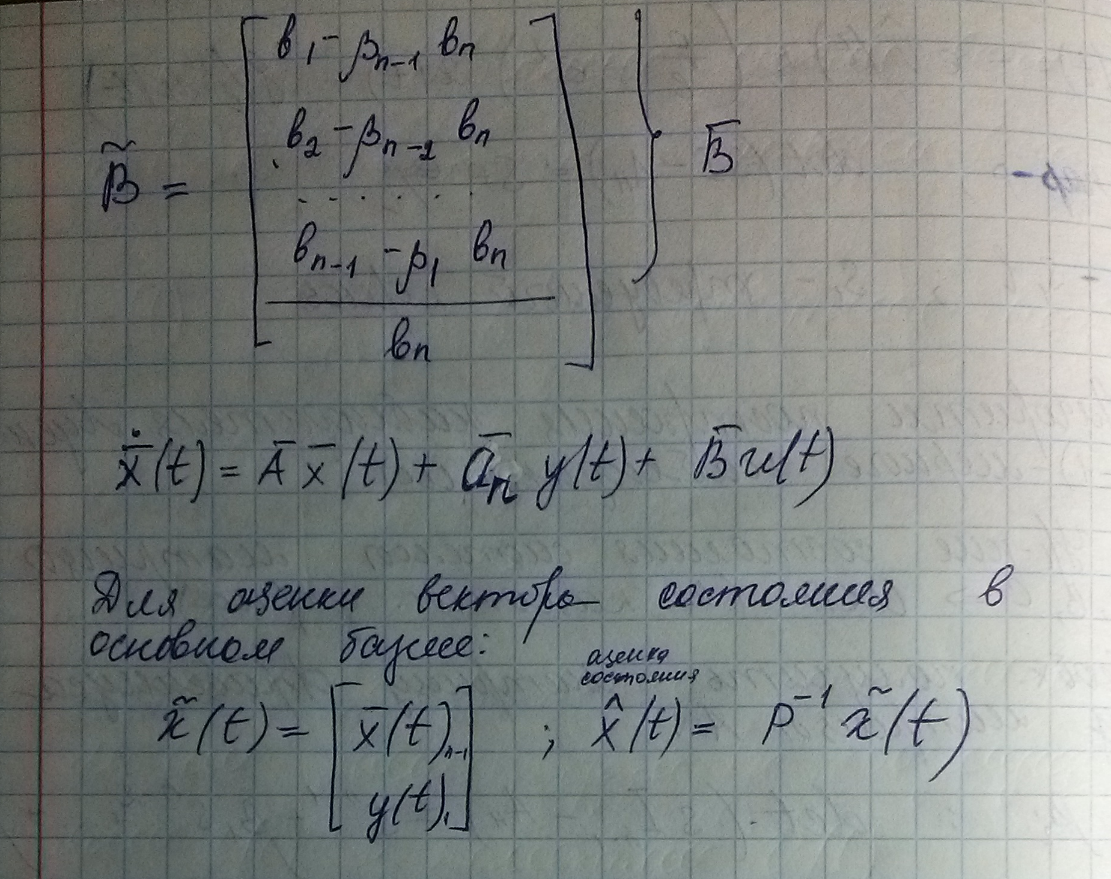 в₁ - βₙ₋₁ вₙ
в₂ - βₙ₋₂ вₙ
B̃ = . . . . . . B̄
вₙ₋₁ - β₁ вₙ
вₙ
ẋ̄(t) = Ā x̄(t) + āₙ y(t) + B̄ u(t)
Для оценки вектора состояния в
основном базисе:
оценка
состояния
x̃(t) = [x̄(t)ₙ₋₁ ; x̂(t) = P⁻¹ x̃(t)
y(t)₁]